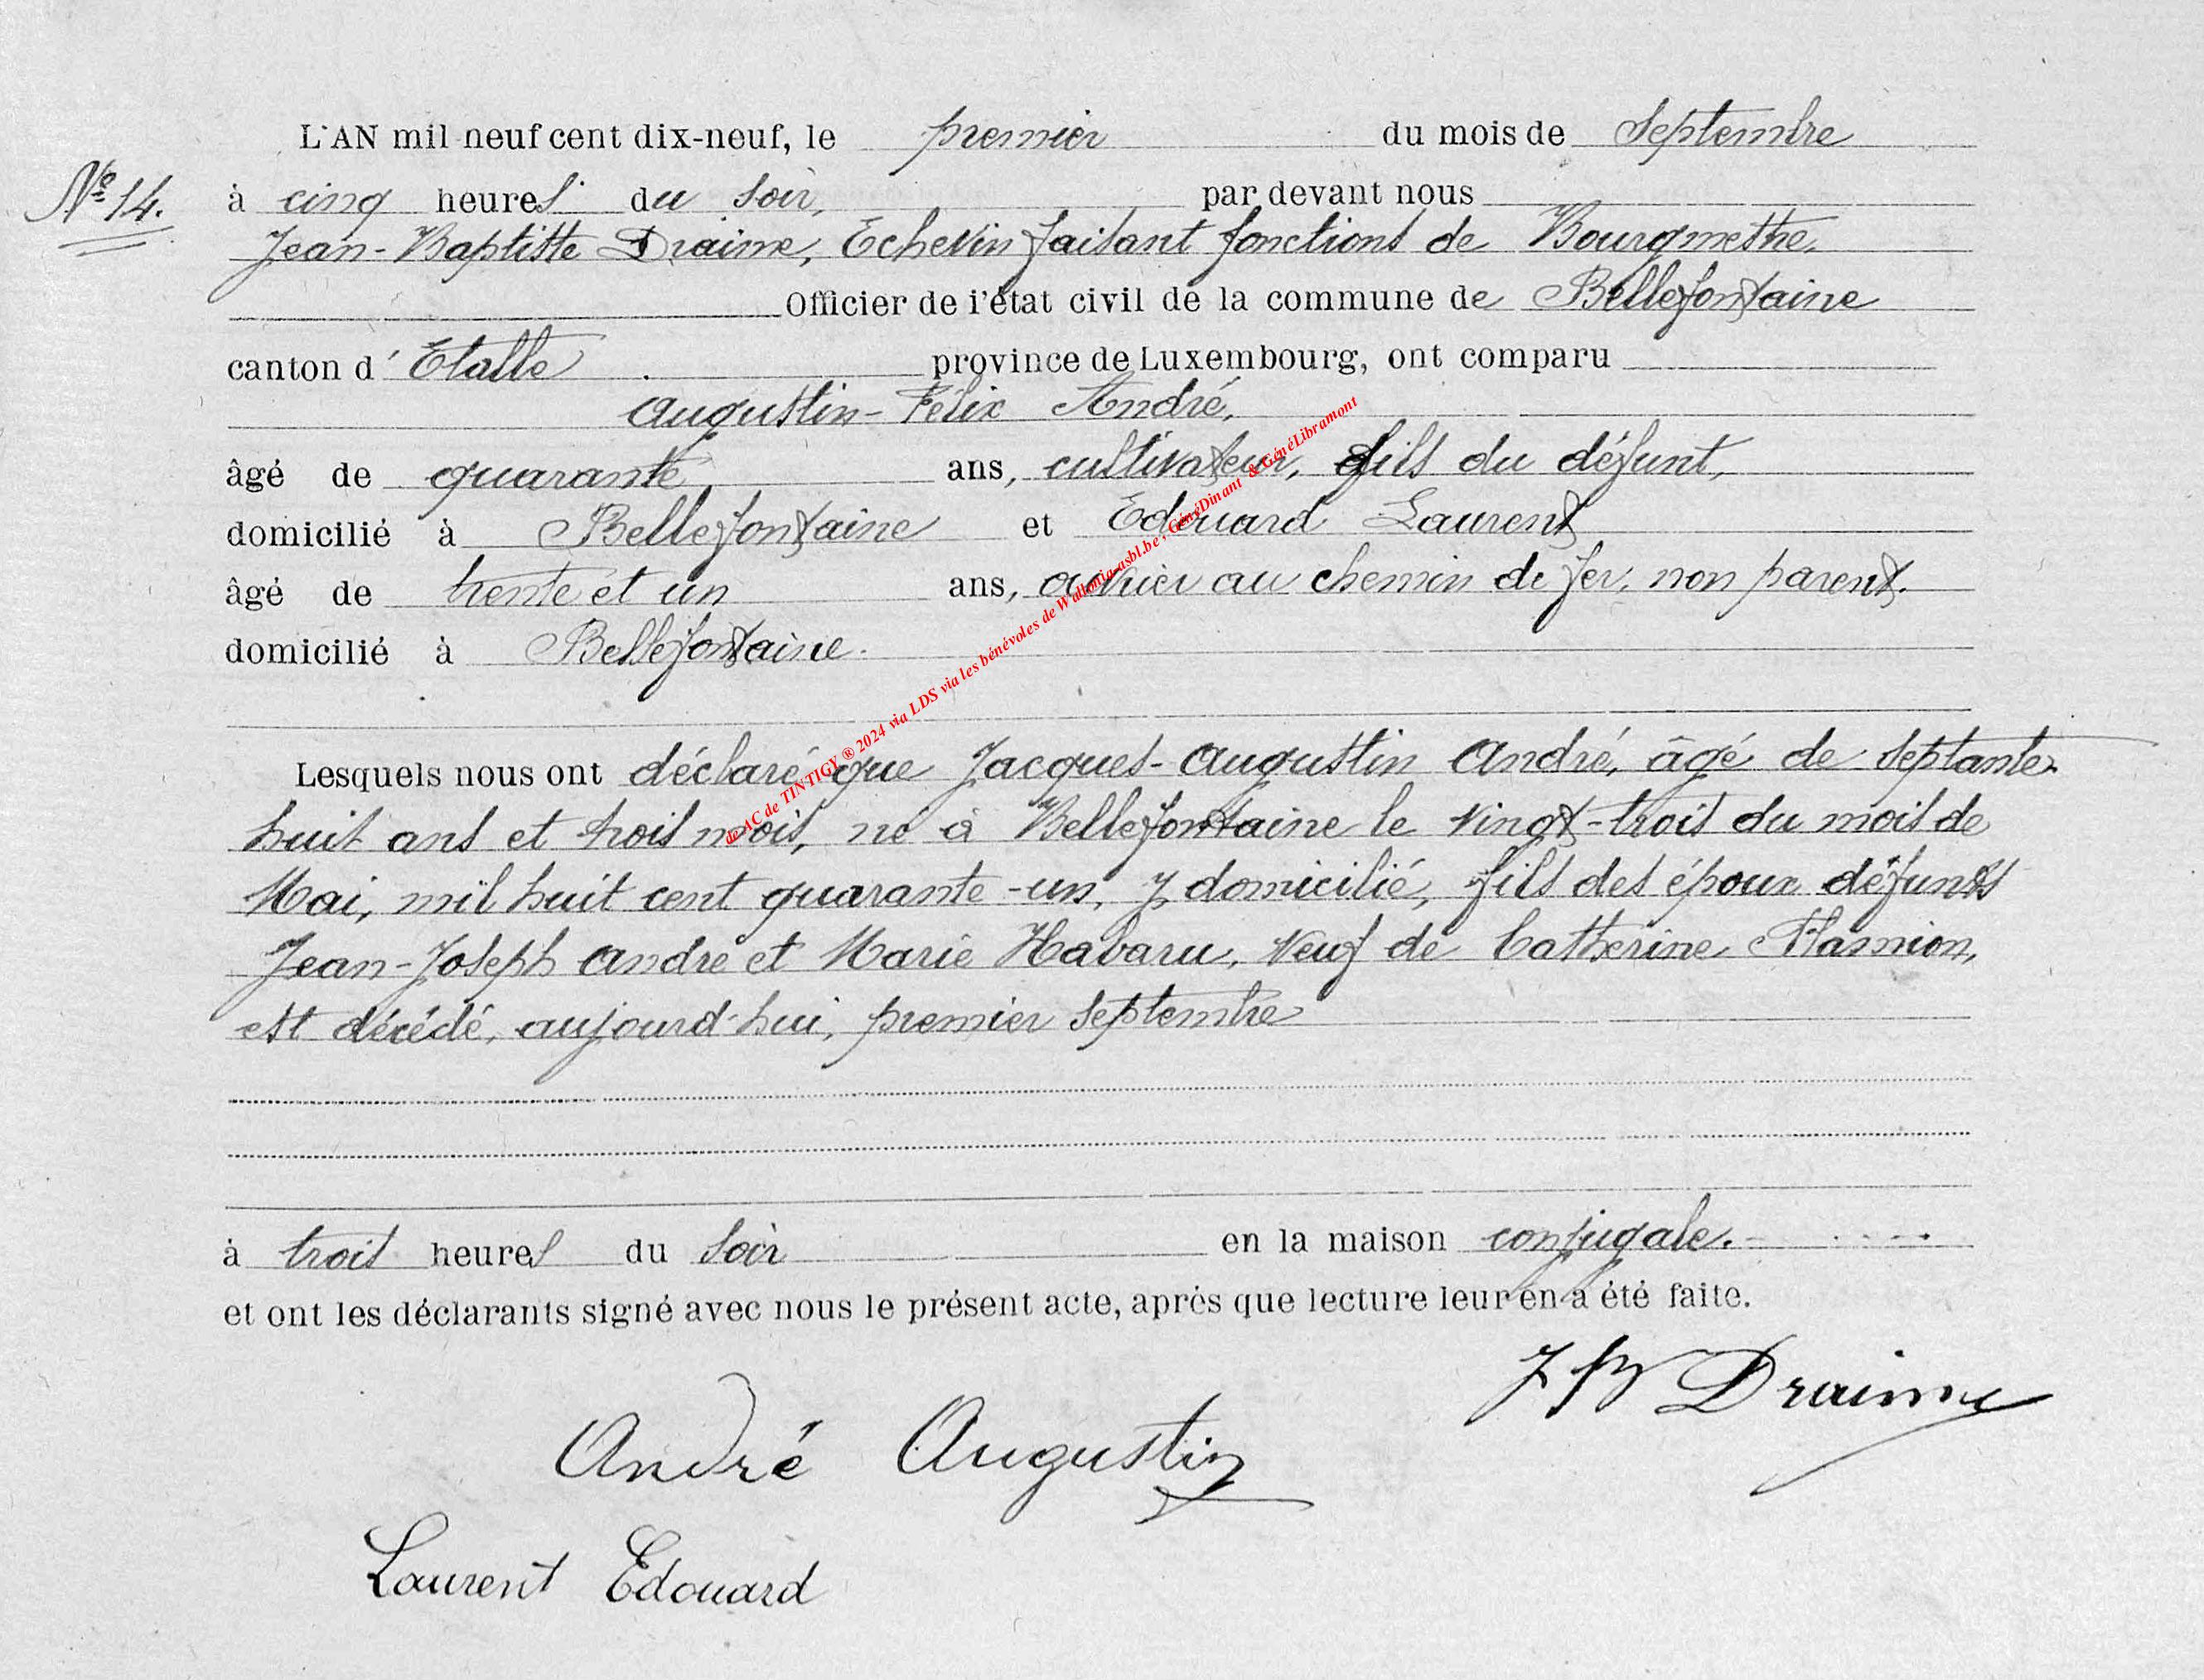 L'AN mil neuf cent dix-neuf, le premier du mois de Septembre
N° 14.
à cinq heures du soir, par devant nous
Jean-Baptiste Draime, Echevin faisant fonctions de Bourgmestre,
Officier de l'état civil de la commune de Bellefontaine
canton d'Etalle province de Luxembourg, ont comparu
Augustin-Félix André,
âgé de quarante ans, cultivateur, fils du défunt,
domicilié à Bellefontaine et Edouard Laurent
âgé de trente et un ans, ouvrier au chemin de fer, non parent.
domicilié à Bellefontaine.
Lesquels nous ont déclaré que Jacques-Augustin André, âgé de septante-
huit ans et trois mois, né à Bellefontaine le vingt-trois du mois de
Mai, mil huit cent quarante-un, y domicilié, fils des époux défunts
Jean-Joseph André et Marie Habaru, veuf de Catherine Hamion,
est décédé, aujourd'hui, premier septembre
à trois heures du soir en la maison conjugale.
et ont les déclarants signé avec nous le présent acte, après que lecture leur en a été faite.
J B Draime
André Augustin
Laurent Edouard
de AC de TINTIGY ® 2024 via LDS via les bénévoles de Wallonia-asbl.be, GénéDinant & GénéLibramont